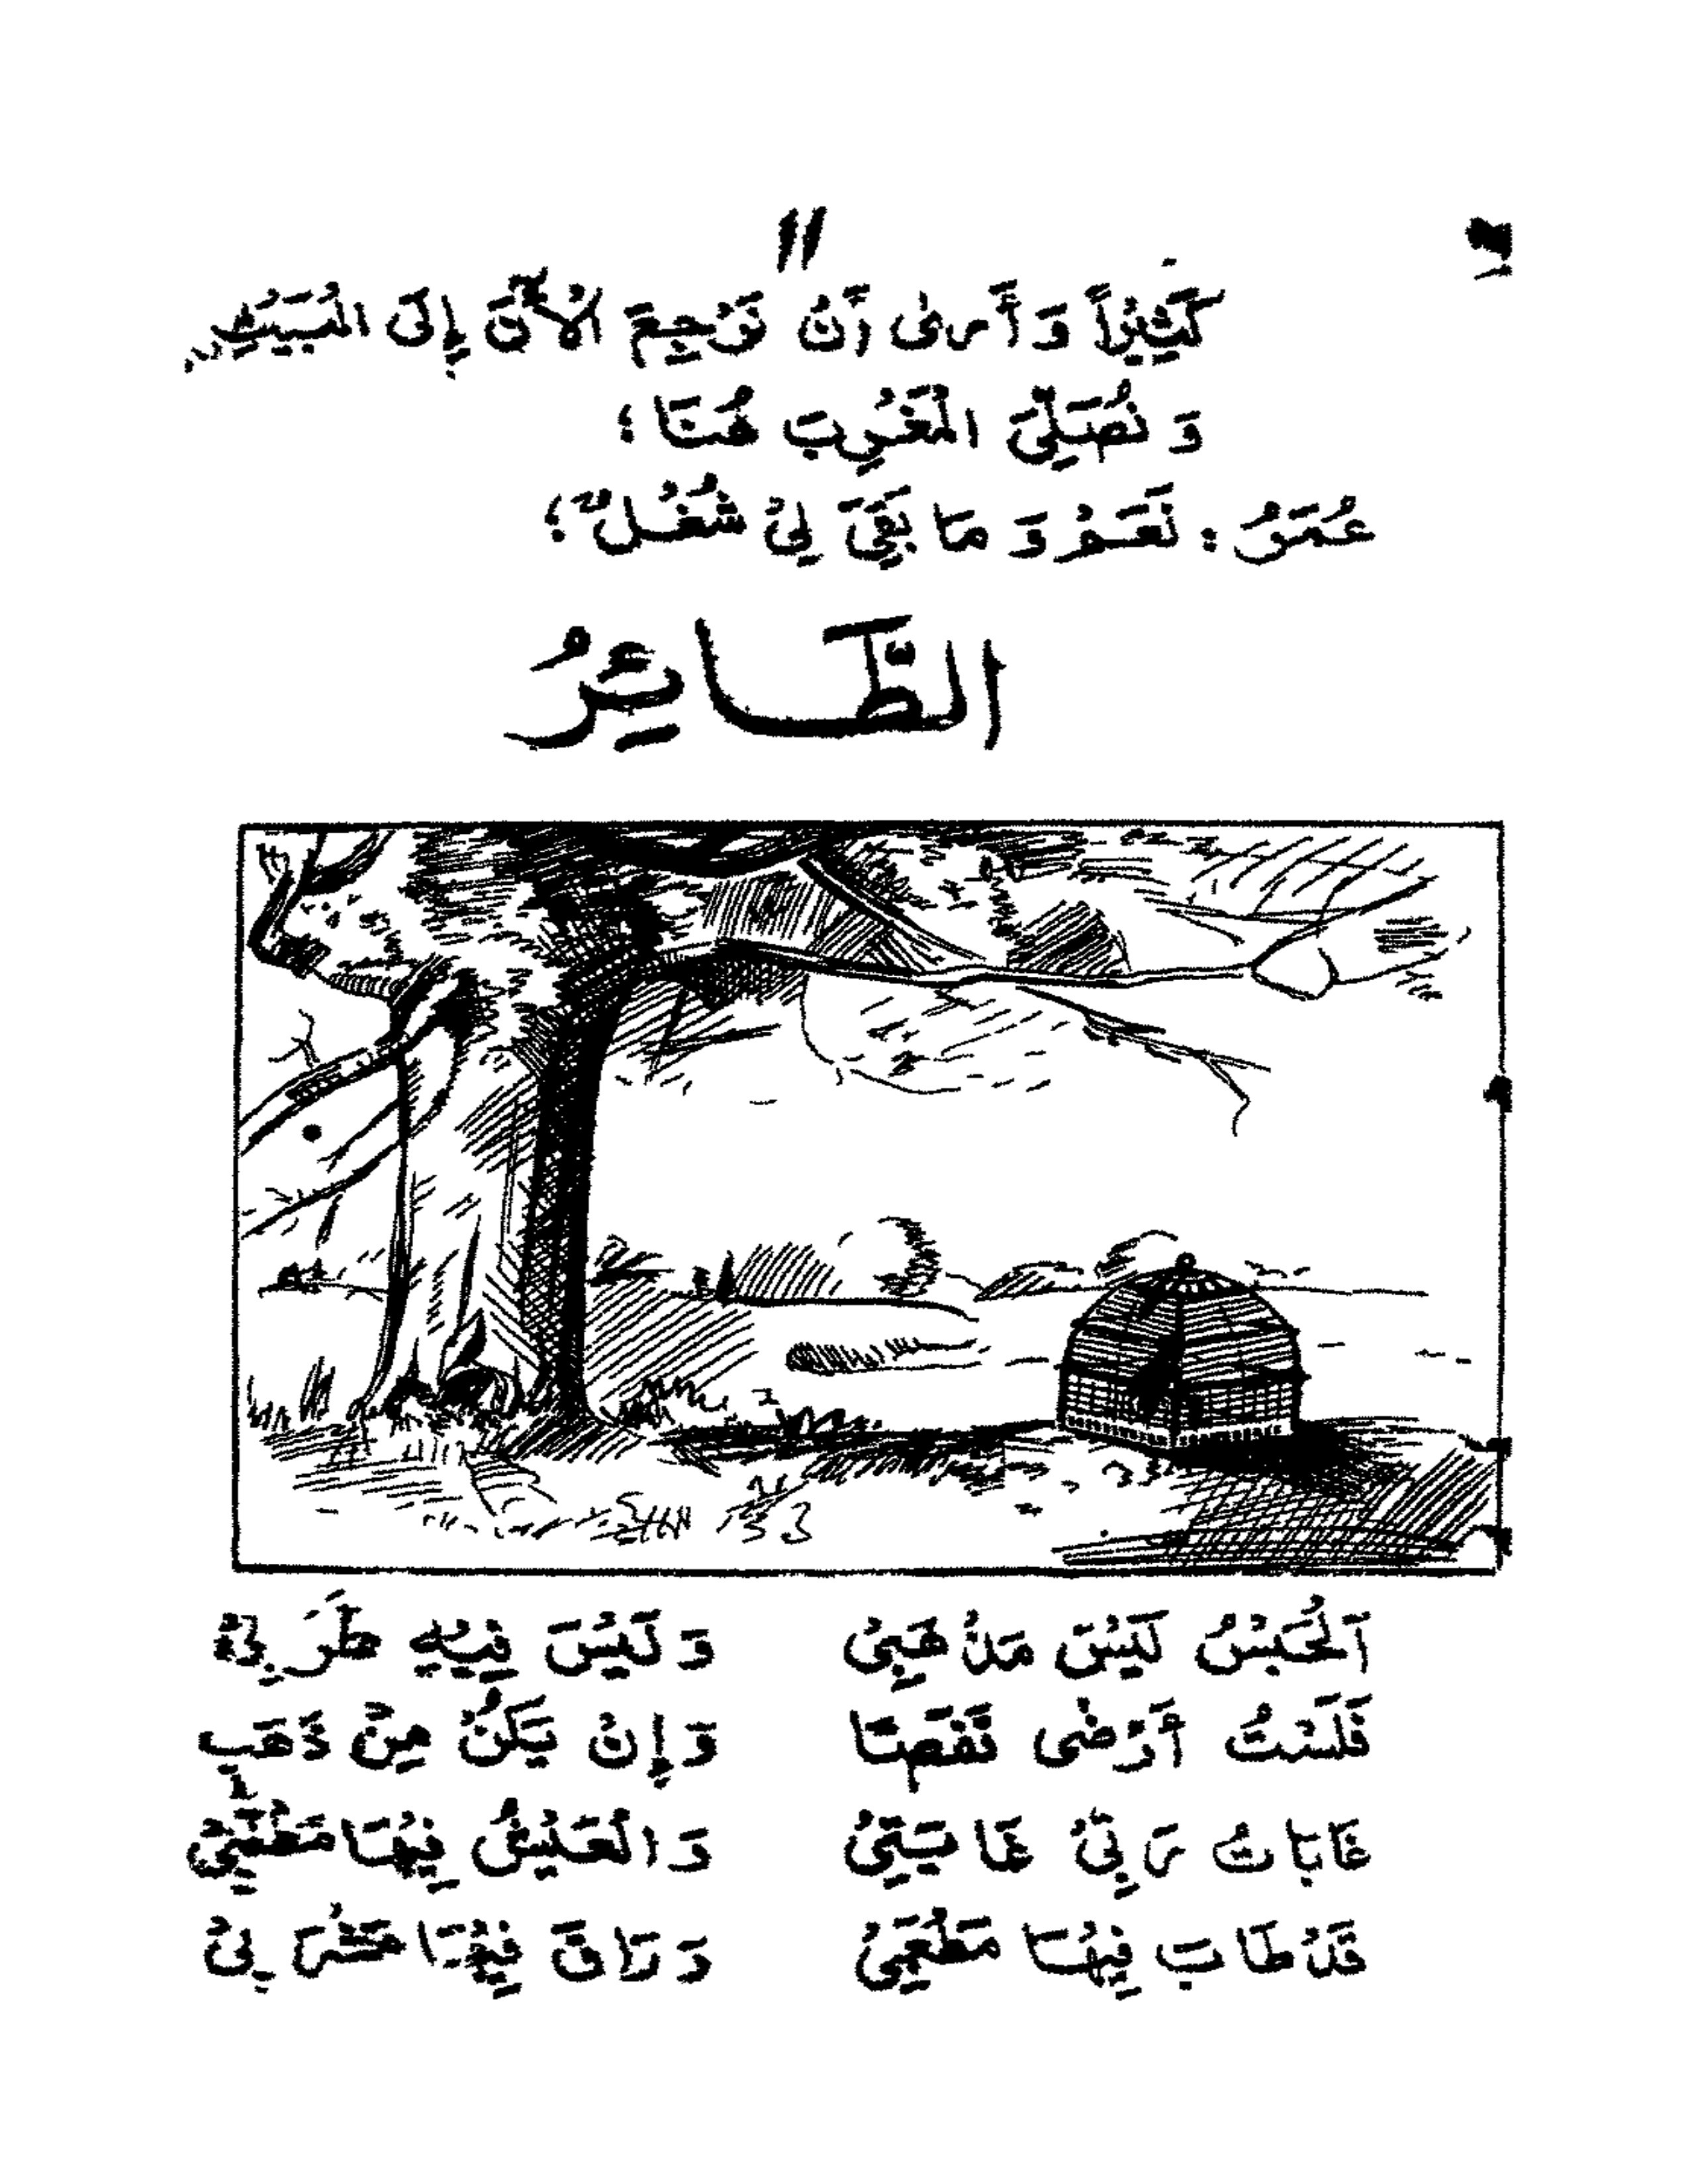 11
كَثِيْراً وَ أَرىٰ أَنْ نَرْجِعَ الْآنَ إِلَى الْبَيْتِ
وَ نُصَلِّيَ الْمَغْرِبَ هُنَا؛
عُمَرُ: نَعَمْ وَ مَا بَقِيَ لِيْ شُغْلٌ؛
الطَّائِرُ
اَلْحَبْسُ لَيْسَ مَذْهَبِيْ وَ لَيْسَ فِيْهِ طَرَبِيْ
فَلَسْتُ أَرْضٰى قَفَصًا وَ إِنْ يَكُنْ مِنْ ذَهَبِ
غَابَاتُ رَبِّيْ غَايَتِيْ وَ الْعَيْشُ فِيْهَا مَطْلَبِيْ
قَدْ طَابَ فِيْهَا مَطْعَمِيْ وَ رَاقَ فِيْهَا مَشْرَبِيْ